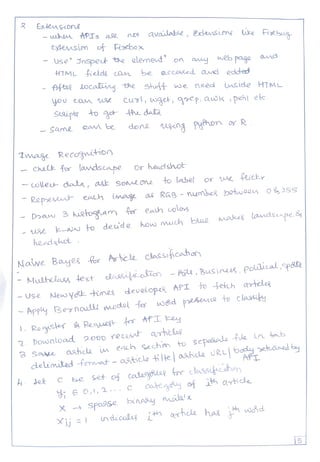 2 Extensions
- when APIs are not available, Extensions like Firebug,
extension of Firefox
- Use "Inspect the element" on any web page and
HTML fields can be accessed and edited
- After locating the stuff we need inside HTML
you can use curl, wget, grep, awk, perl etc
scripts to get the data
- Same can be done using python or R
Image Recognition
- check for landscape or headshot
- collect data, ask someone to label or use flickr
- Represent each image as RGB - number between 0 & 255
- Draw 3 histogram for each color
- use k-NN to decide how much blue makes landscape &
headshot.
Naive Bayes for Article classification
- Multiclass text classification - Arts, Business, political, sports
- Use Newyork times developer API to fetch articles
- Apply Bernoulli model for word presence to classify
1. Register & Request for API Key
2. Download 2000 recent articles
3 Save article in each section to separate file in tab
delimited format - article title | article URL | body returned by
API.
4 Let C be set of categories for classification
yi ∈ 0,1,2... C category of ith article
X → sparse binary matrix
Xij = 1 indicates ith article has jth word
15